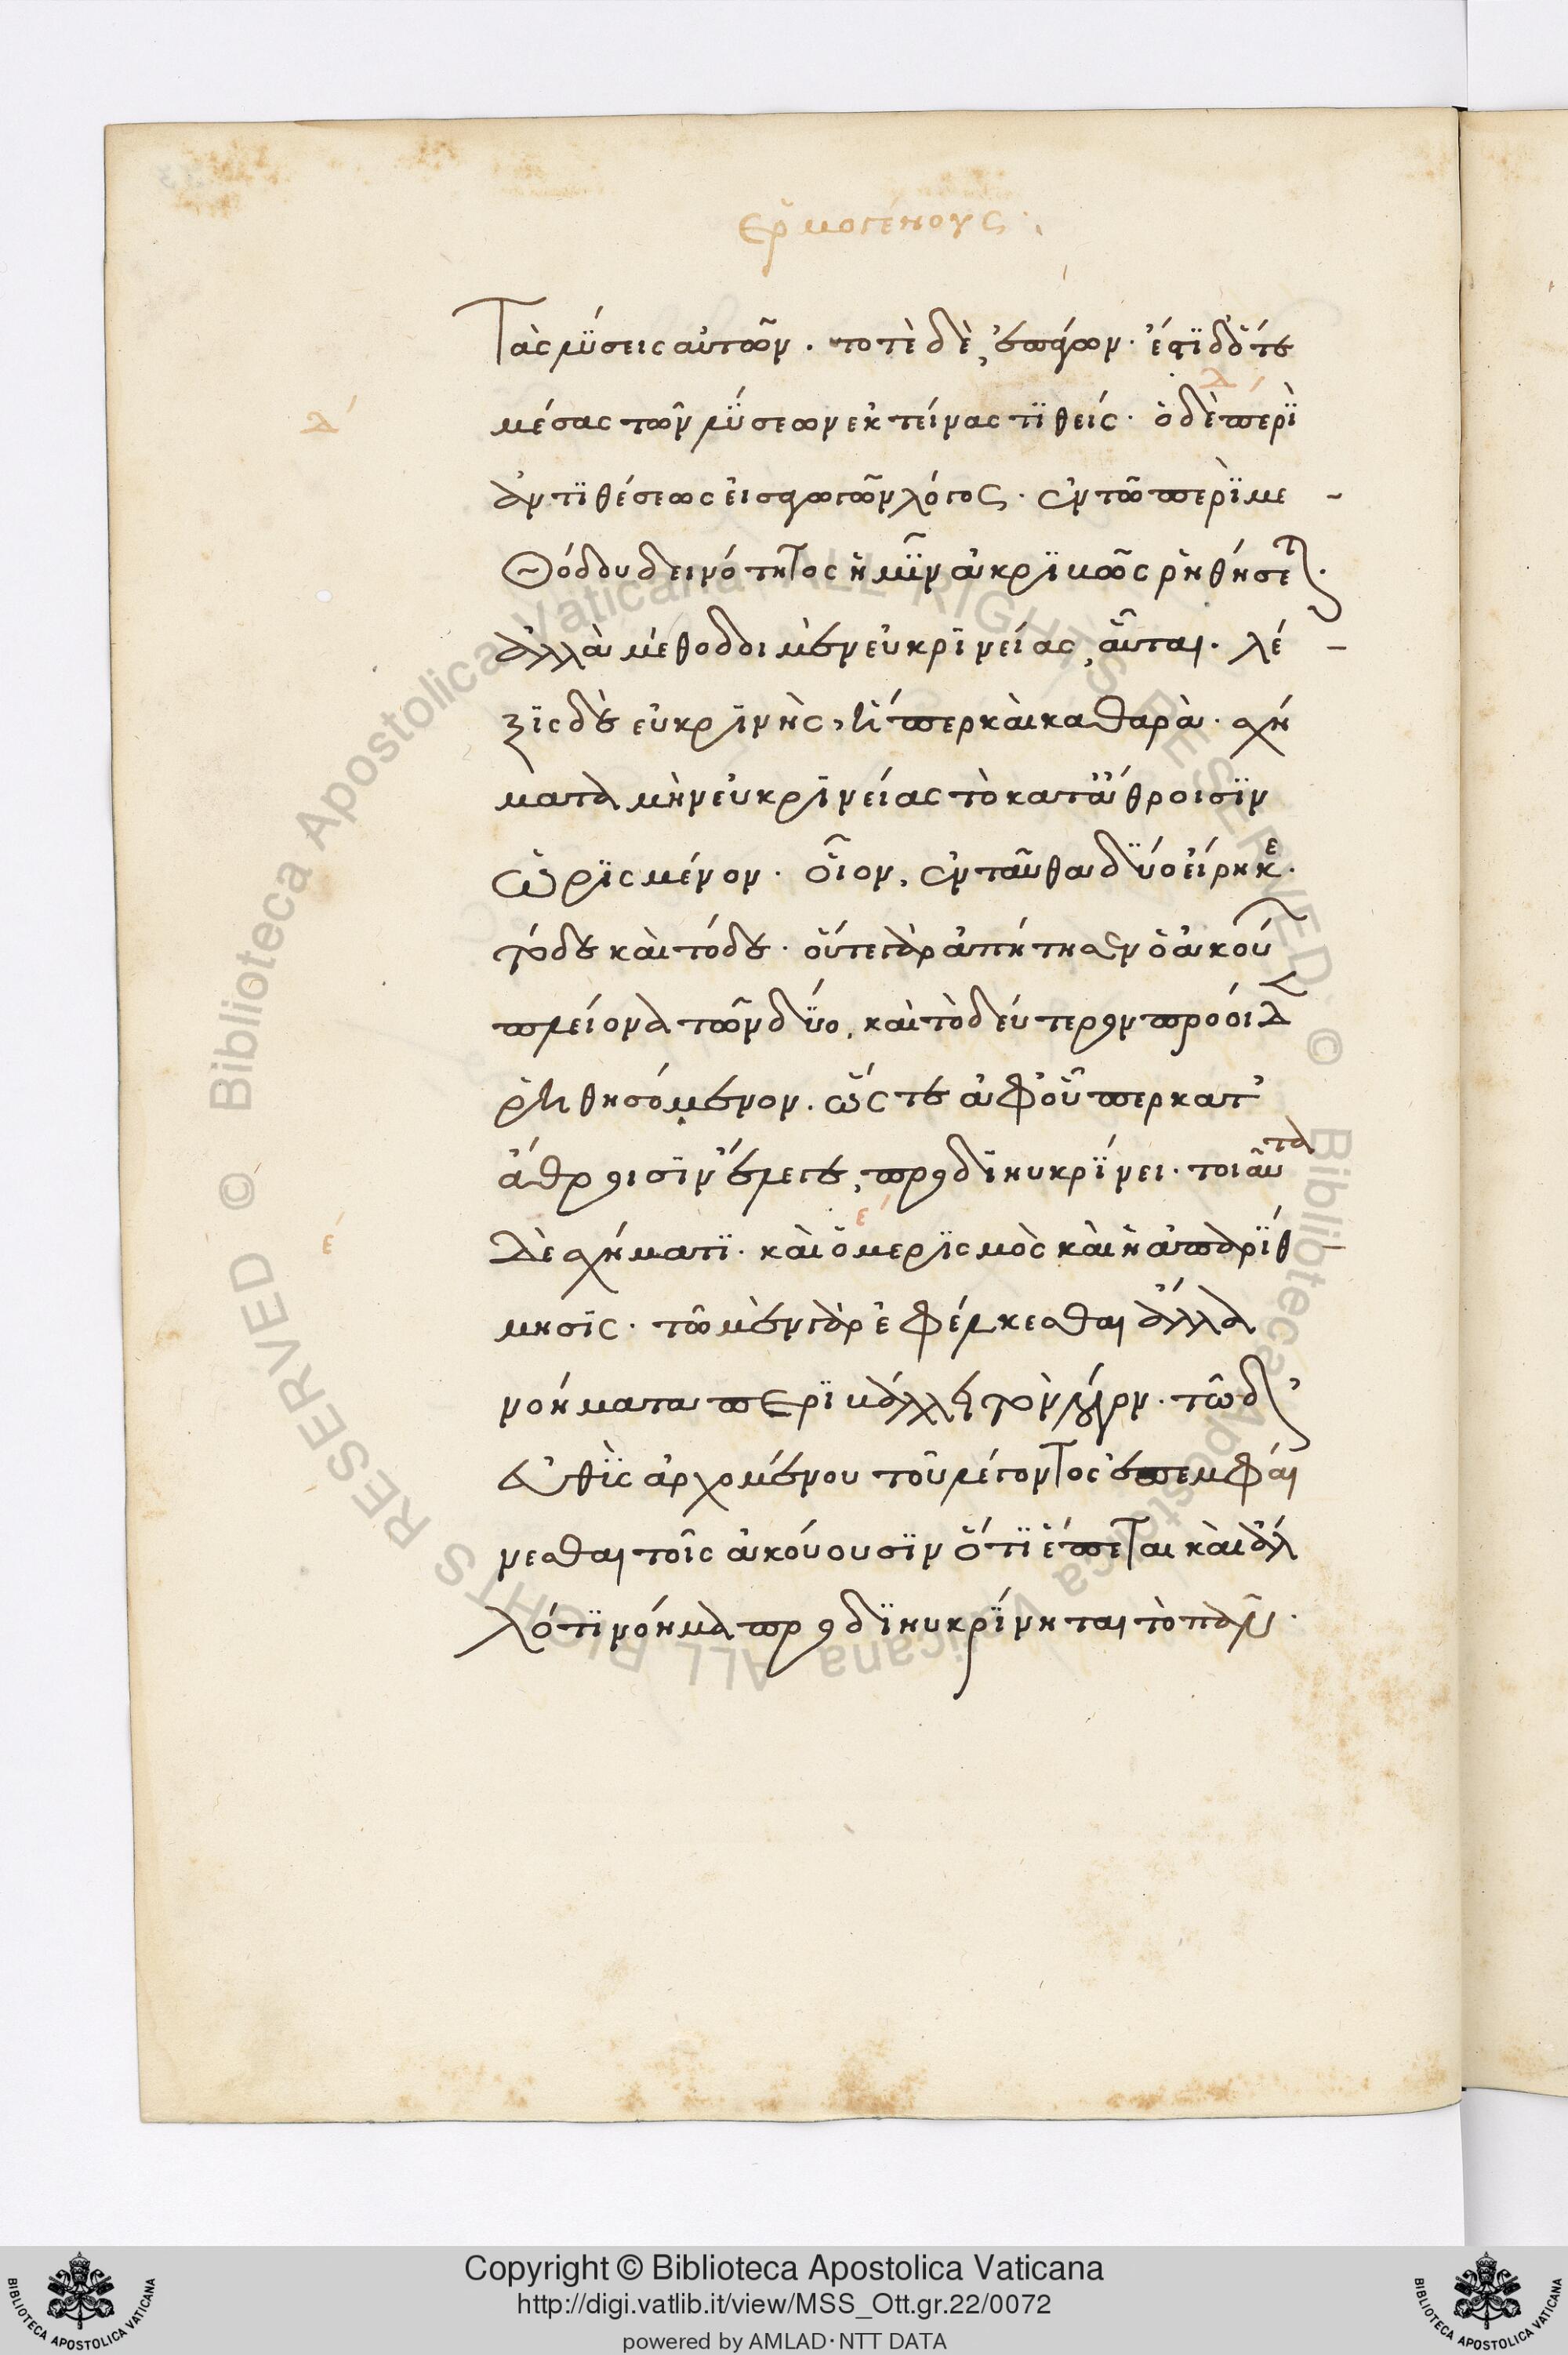 Ἑρμογένους.
Τὰς λύσεις αὐτῶν. ποτὲ δὲ, ἐπάγων. ἔστι δ' ὅτε
μέσας τῶν λύσεων ἐκτείνας τιθείς. ὁ δὲ περὶ
δ
δ
ἀντιθέσεως εἰσαγωγῶν λόγος. ἐν τῶ περὶ με
θόδου δεινότητος ἡμῖν ἀκριβῶς ῥηθήσεται.
ἀλλὰ μέθοδοι μὲν εὐκρινείας, αὗται. λέ
ξις δὲ εὐκρινὴς, ἥπερ καὶ καθαρὰ. σχή
ματα μὴν εὐκρινείας τὸ κατ' ἄθροισιν
ὡρισμένον. οἷον, ἐνταῦθα δύο εἴρηκε.
τόδε καὶ τόδε. οὔτε γὰρ ἀπήτησεν ὁ ἀκούων
πλείονα τῶν δύο, καὶ τὸ δεύτερον προοιδε
ῥηθησόμενον. ὥστε ἀφ' οὗπερ κατ'
ἄθροισιν ἔλεγε, προδιηυκρίνει. τοιαῦτα
δὲ σχήματι. καὶ ὁ μερισμὸς καὶ ἡ ἀπαρίθ
ε
ε
μησις. τῶ μὲν γὰρ ἐφέλκεσθαι ἄλλα
νοήματα περιβάλλει τὸν λόγον. τῶ δ'
εὐθὺς ἀρχομένου τοῦ λέγοντος ἐπεμφαί
νεσθαι τοῖς ἀκούουσιν ὅτι ἕπεται καὶ ἄλ
λό τι νόημα προδιηυκρίνηται τὸ πᾶν.
Copyright © Biblioteca Apostolica Vaticana
http://digi.vatlib.it/view/MSS_Ott.gr.22/0072
powered by AMLAD·NTT DATA